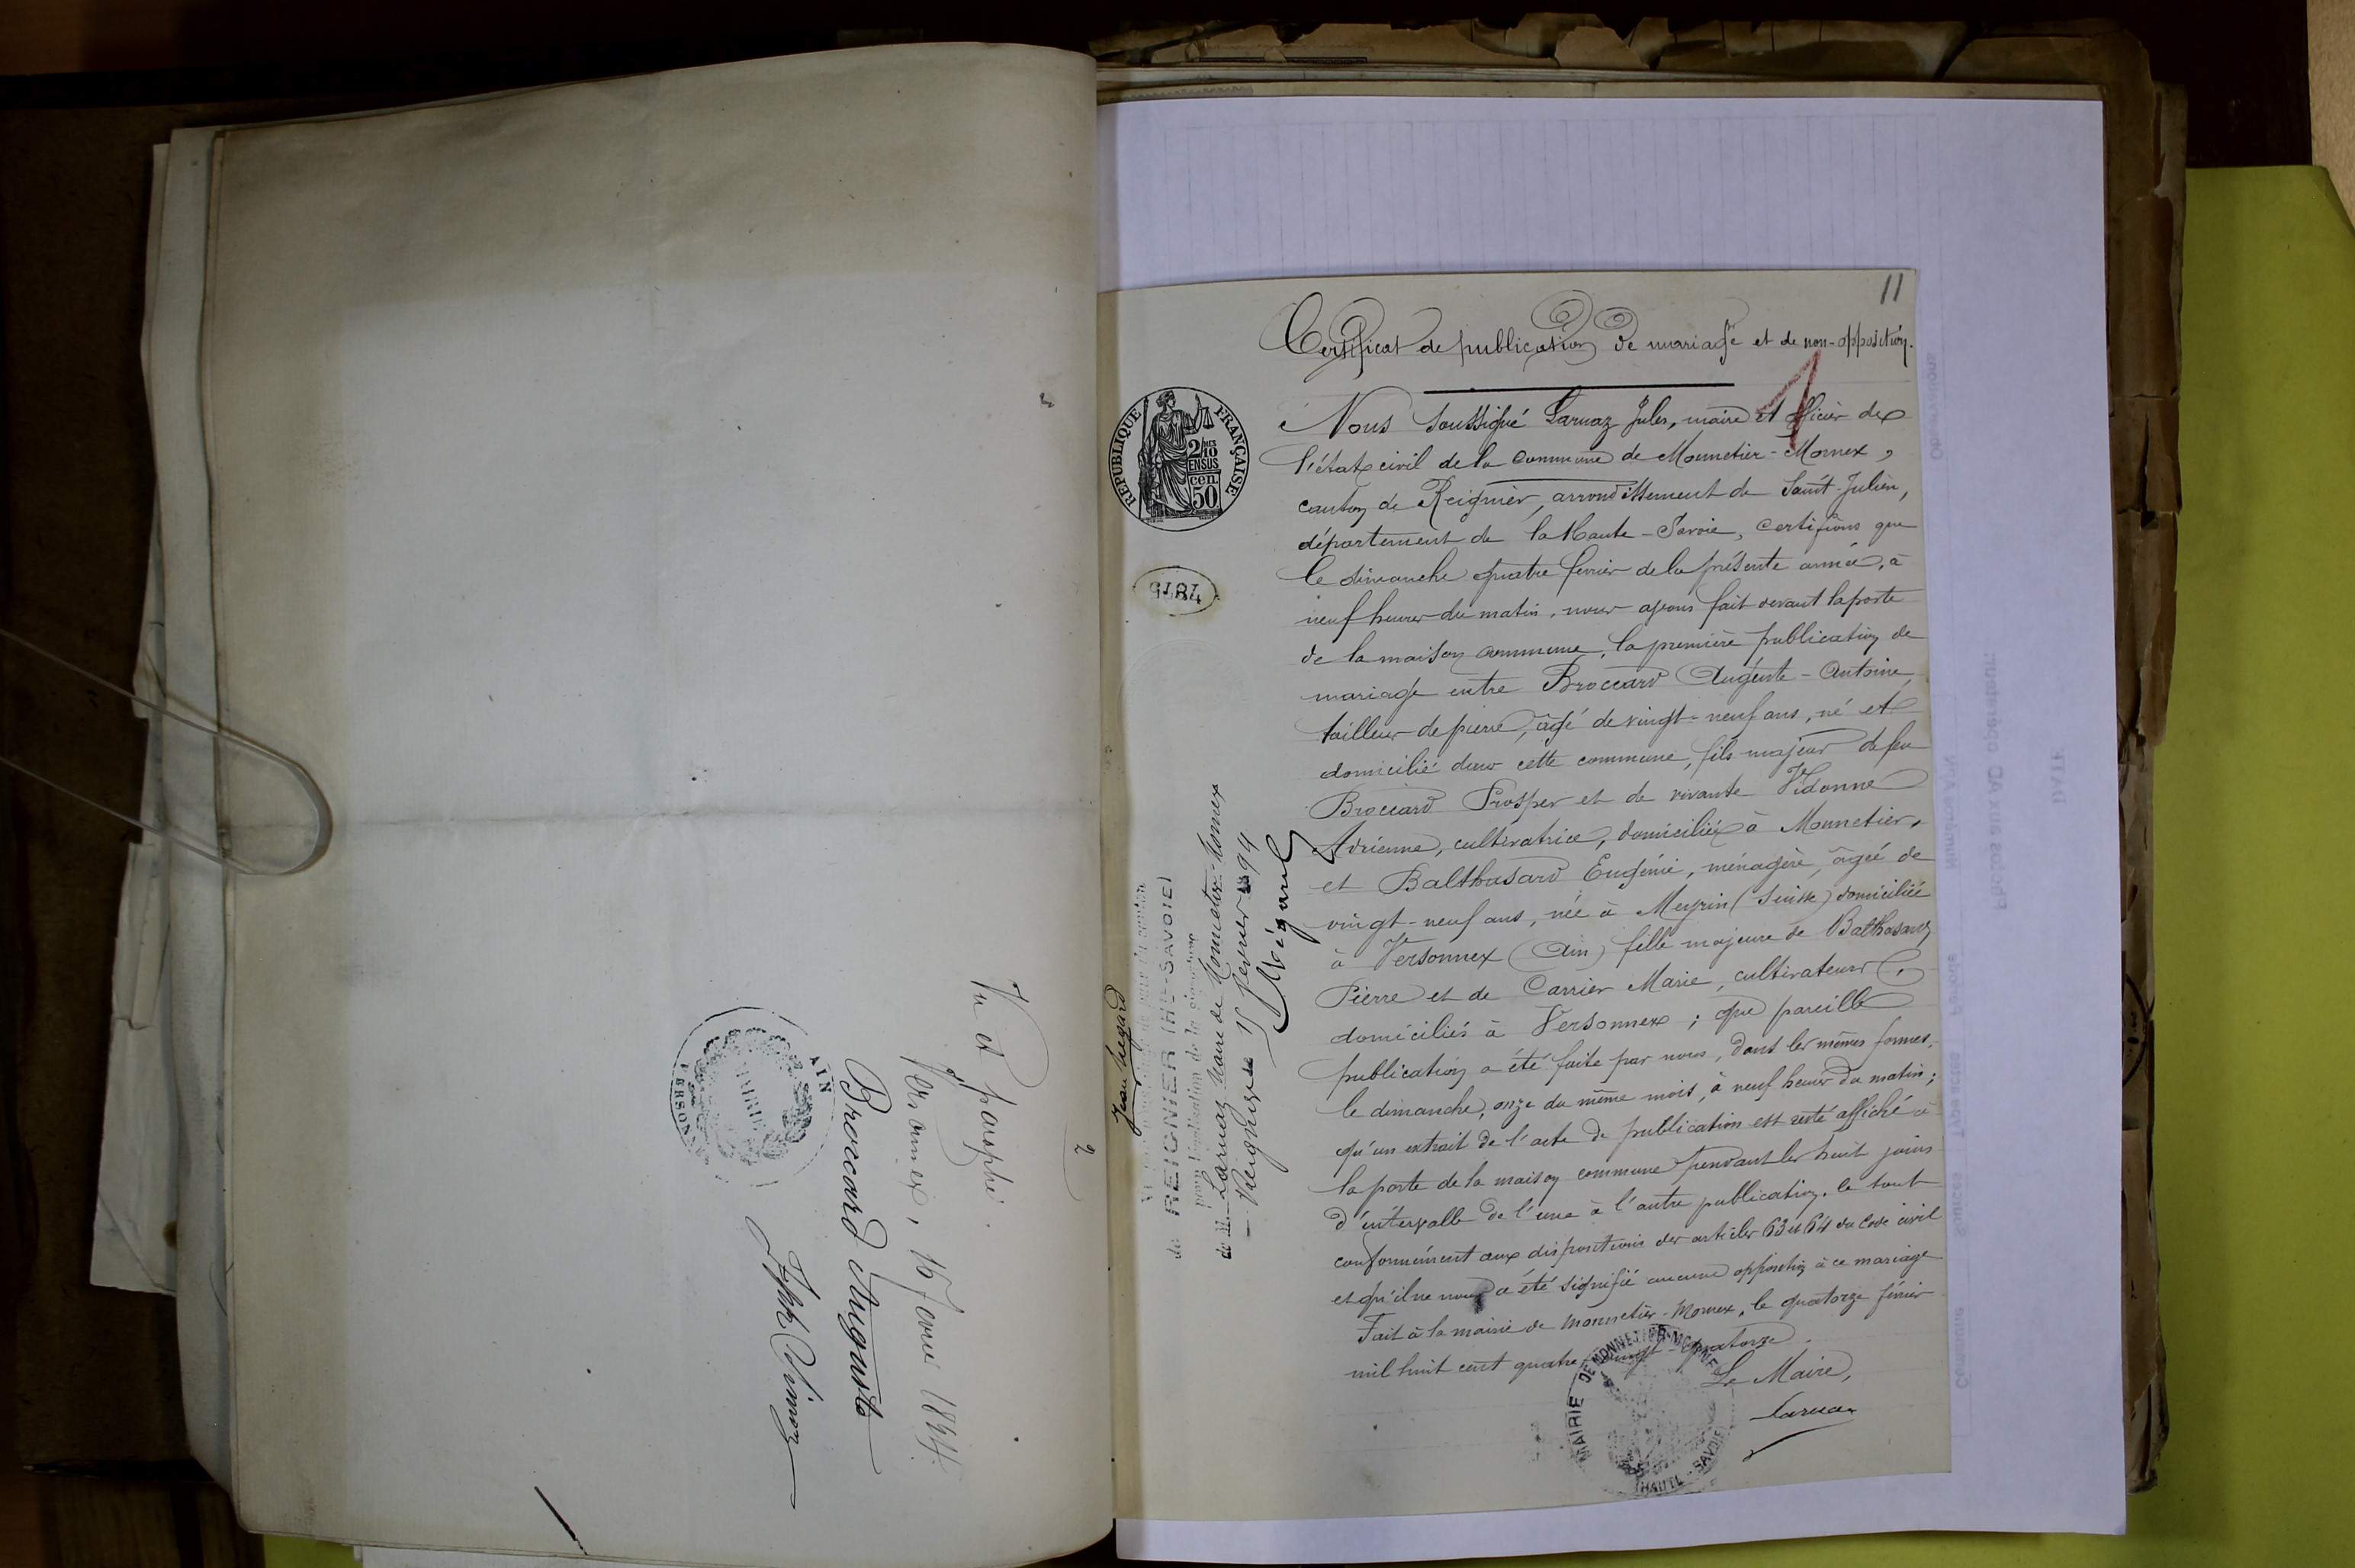 Vu et paraphé.
Versonnex, 16 février 1894
Broccard Auguste
AIN
MAIRIE
VERSONNEX
2
11
Certificat de publication de mariage et de non-opposition.
1
Nous soussigné Larnaz Jules, maire et officier de
l'état civil de la commune de Monnetier-Mornex,
canton de Reignier, arrondissement de Saint-Julien,
département de la Haute-Savoie, certifions que
le dimanche quatre février de la présente année, à
neuf heures du matin, nous avons fait devant la porte
de la maison commune, la première publication de
mariage entre Broccard Auguste-Antoine,
tailleur de pierre, âgé de vingt-neuf ans, né et
domicilié dans cette commune, fils majeur de feu
Broccard Prosper et de vivante Vidonne
Adrienne, cultivatrice, domiciliée à Monnetier,
et Balthasard Eugénie, ménagère, âgée de
vingt-neuf ans, née à Meyrin (Suisse) domiciliée
à Versonnex (Ain) fille majeure de Balthasard
Pierre et de Carrier Marie, cultivateurs,
domiciliés à Versonnex; que pareille
publication a été faite par nous, dans les mêmes formes,
le dimanche, onze du même mois, à neuf heures du matin;
qu'un extrait de l'acte de publication est resté affiché à
la porte de la maison commune pendant les huit jours
d'intervalle de l'une à l'autre publication, le tout
conformément aux dispositions des articles 63 et 64 du Code civil
et qu'il ne nous a été signifié aucune opposition à ce mariage
Fait à la mairie de Monnetier-Mornex, le quatorze février
mil huit cent quatre-vingt-quatorze.
Le Maire,
Larnaz
MAIRIE DE MONNETIER-MORNEX
HAUTE-SAVOIE
REPUBLIQUE FRANÇAISE
2/10 MES
EN SUS
50 cen.
de REIGNIER (HTE-SAVOIE)
pour légalisation de la signature
de M. Larnaz Maire de Monnetier-Mornex
Reignier 15 février 1894